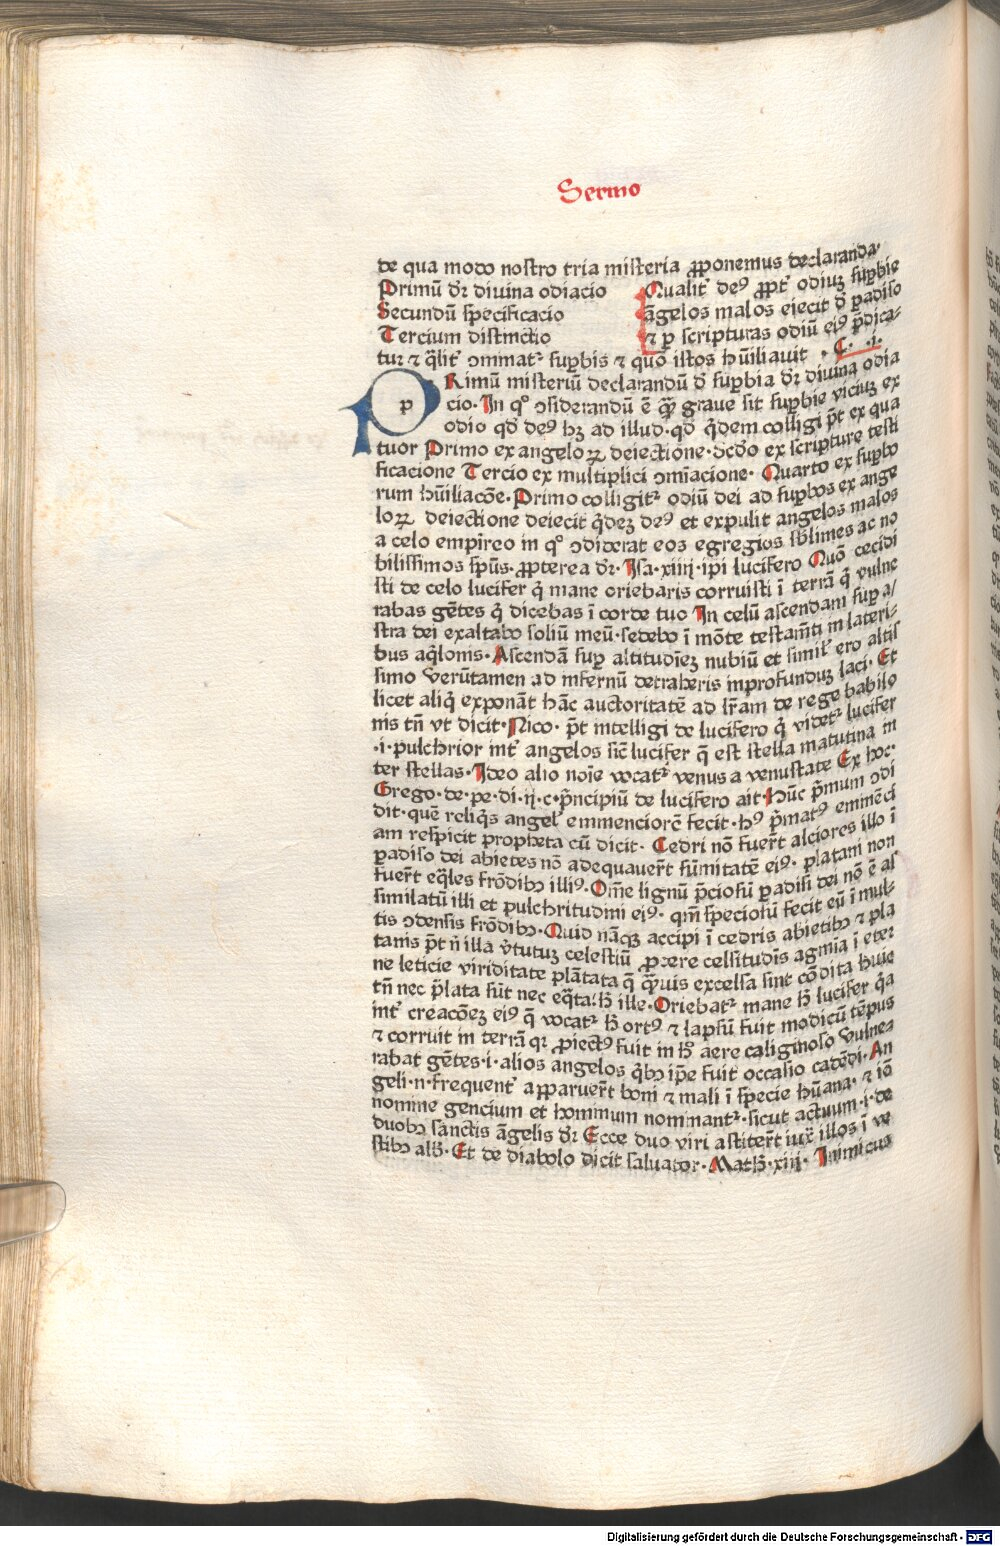 Sermo
de qua modo nostro tria misteria ꝓponemus declaranda·
Primū dr̄ divina odiacio Qualit᷑ deꝰ ꝓpt᷑ odiuꝫ suꝑbie
Secundū specificacio āgelos malos eiecit d̄ ꝑadiso
Tercium distinctio ⁊ ꝑ scripturas odiū eiꝰ p̄dica-
tur ⁊ q̄lit᷑ ↄminat᷑ suꝑbis ⁊ quō istos hūiliavit · C· ·i·
PRimū misteriū declarandū d̄ suꝑbia dr̄ divina odia
cio· In qͦ ↄsiderandū ē qͣꝫ grave sit suꝑbie viciuꝫ ex
odio qd̄ deꝰ hꝫ ad illud· qd̄ q̄dem colligi pt̄ ex qua
tuor Primo ex angeloꝝ deiectione· Scd̄o ex scripture testi
ficacione Tercio ex multiplici ↄmīacione· Quarto ex suꝑbo
rum hūiliacōe· Primo colligit᷑ odiū dei ad suꝑbos ex ange
loꝝ deiectione deiecit q̄deꝫ deꝰ et expulit angelos malos
a celo empireo in qͦ ↄdiderat eos egregios sb̄limes ac no
bilissimos sp̄us· ꝓpterea dr̄· Isa· xiiij· ip̄i lucifero Quō cecidi
sti de celo lucifer q̄ mane oriebaris corruisti ī terrā q̄ vulne
rabas gētes q̄ dicebas ī corde tuo In celū ascendam suꝑ a/
stra dei exaltabo soliū meū· sedebo ī mōte testam̄ti in lateri-
bus aq̄lonis· Ascendā suꝑ altitudīeꝫ nubiū et simil᷑ ero altis
simo verūtamen ad infernū detraheris inprofunduꝫ laci· Et
licet aliq̄ exponāt hāc auctoritatē ad lr̄am de rege babilo
nis tn̄ vt dicit· Nico· pt̄ intelligi de lucifero q̄ videt᷑ lucifer
·i· pulchrior int᷑ angelos sic̄ lucifer q̄ est stella matutina in
ter stellas· Ideo alio noīe vocat᷑ venus a venustate Ex hoc·
Grego· de· pe· di· ij· c· p̄ncipiū de lucifero ait· Hūc p̄mum ↄdi
dit· quē reliq̄s angel᷑ emmenciorē fecit· hꝰ p̄matꝰ eminēci
am respicit propheta cū dicit· Cedri nō fuer̄t alciores illo ī
ꝑadiso dei abietes nō adequaver̄t sūmitatē eiꝰ· platani non
fuer̄t eq̄les frōdibꝫ illiꝰ· Om̄e lignū p̄ciosū ꝑadisi dei nō ē as
similatū illi et pulchritudini eiꝰ· qm̄ speciosū fecit eū ī mul-
tis ↄdensis frōdibꝫ· Quid nāqꝫ accipi ī cedris abietibꝫ ⁊ pla
tanis pt̄ n̄ illa v̄tutuꝫ celestiū ꝓcere celsitudīs agmīa ī eter
ne leticie viriditate plātata q̄ qͣꝫuis excelsa sint cōdita huic
tn̄ nec p̄lata sūt nec eq̄ta· h̄ ille· Oriebat᷑ mane h̄ lucifer q̄a
int᷑ creacōeꝫ eiꝰ q̄ vocat᷑ h̄ ortꝰ ⁊ lapsū fuit modicū tēpus
⁊ corruit in terrā qꝛ ꝓiectꝰ fuit in hͦ aere caliginoso Vulne-
rabat gētes ·i· alios angelos q̄bꝫ ip̄e fuit occasio cadēdi· An
geli ·n· frequent᷑ apparuer̄t boni ⁊ mali ī specie hūana· ⁊ iō
nomine gencium et hominum nominant᷑· sicut actuum ·i· de
duobꝫ sanctis āgelis dr̄ Ecce duo viri astiter̄t iux̄ illos ī ve
stibꝫ alb̄· Et de diabolo dicit salvator· Math̄· xiij· Inimicus
Digitalisierung gefördert durch die Deutsche Forschungsgemeinschaft · DFG